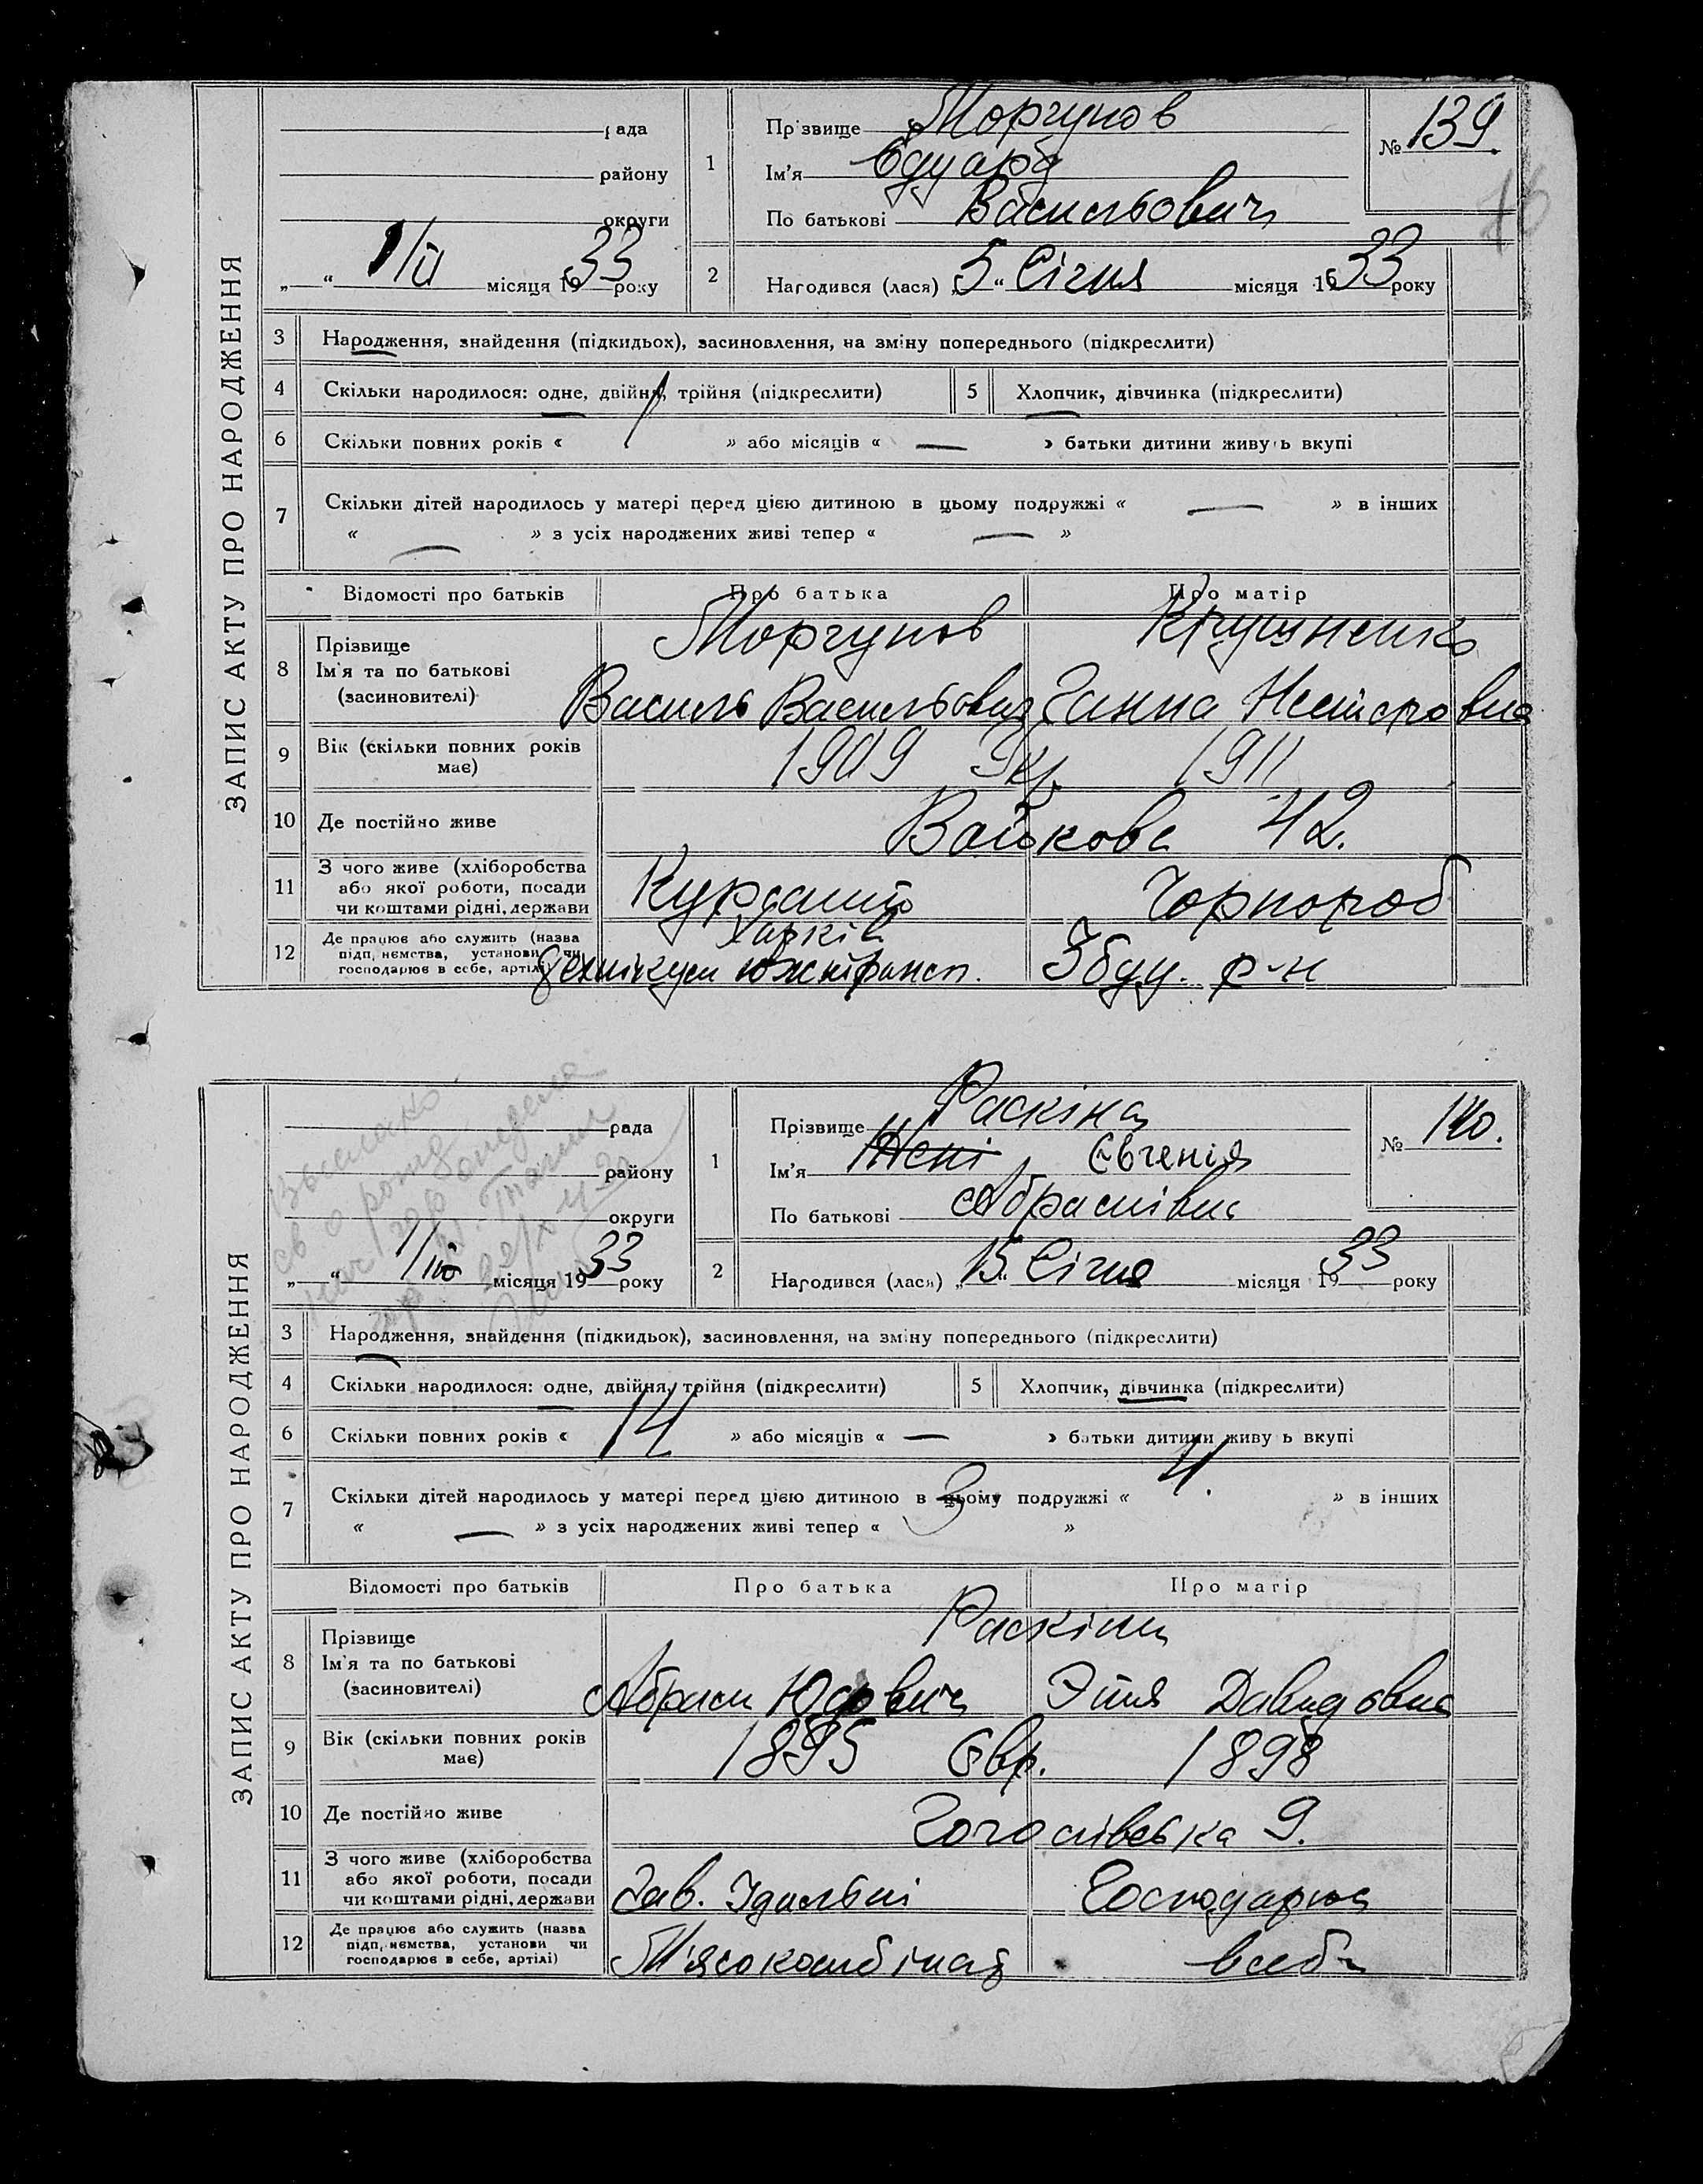 ЗАПИС АКТУ ПРО НАРОДЖЕННЯ
рада
району
округи
1/II місяця 1933 року
1 Прізвище Моргунов
Ім'я Едуард
По батькові Васильович
№ 139.
2 Народився (лася) „5“ Січня місяця 1933 року
3 Народження, знайдення (підкидьох), засиновлення, на зміну попереднього (підкреслити)
4 Скільки народилося: одне, двійня, трійня (підкреслити)
5 Хлопчик, дівчинка (підкреслити)
6 Скільки повних років « 1 » або місяців « — » батьки дитини живуть вкупі
7 Скільки дітей народилось у матері перед цією дитиною в цьому подружжі « — » в інших
« — » з усіх народжених живі тепер « — »
Відомості про батьків Про батька Про матір
8 Прізвище
Ім'я та по батькові
(засиновителі)
Моргунов
Василь Васильович Ганна Несторовна
9 Вік (скільки повних років має) 1909 Укр. 1911
10 Де постійно живе Байкова 42.
11 З чого живе (хліборобства
або якої роботи, посади
чи коштами рідні, держави
Курсант Чорнороб
12 Де працює або служить (назва
підприємства, установи чи
господарює в себе, артілі)
Харків
р-н
ЗАПИС АКТУ ПРО НАРОДЖЕННЯ
рада
району
округи
1/II місяця 1933 року
1 Прізвище Раскіна
Ім'я Жені Євгенія
По батькові Абрамівна
№ 140.
2 Народився (лася) „15“ Січня місяця 1933 року
3 Народження, знайдення (підкидьок), засиновлення, на зміну попереднього (підкреслити)
4 Скільки народилося: одне, двійня, трійня (підкреслити)
5 Хлопчик, дівчинка (підкреслити)
6 Скільки повних років « 14 » або місяців « — » батьки дитини живуть вкупі
7 Скільки дітей народилось у матері перед цією дитиною в цьому подружжі « 4. » в інших
« — » з усіх народжених живі тепер « 3 »
Відомості про батьків Про батька Про матір
8 Прізвище
Ім'я та по батькові
(засиновителі)
Раскіни
Абрам Юдович Этя Давидовна
9 Вік (скільки повних років має) 1895 Євр. 1898
10 Де постійно живе Гоголівська 9.
11 З чого живе (хліборобства
або якої роботи, посади
чи коштами рідні, держави
Зав. Їдальні Господарює
12 Де працює або служить (назва
підприємства, установи чи
господарює в себе, артілі)
М'ясокомбінат в себе